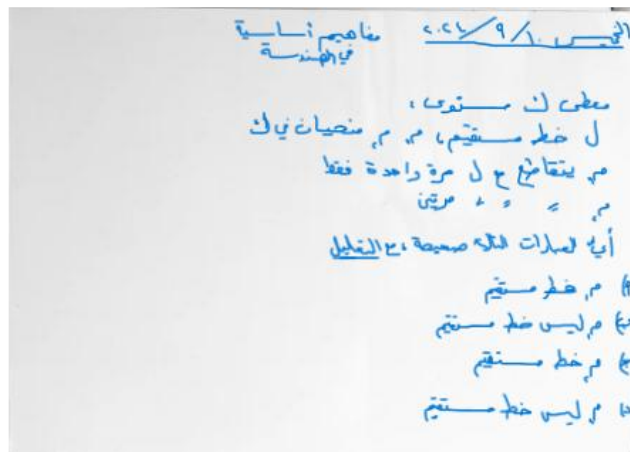 الخميس ١٠/٩/٢٠٢٠ مفاهيم أساسية
في الهندسة
معطى ك مستوى،
ل خط مستقيم، م١ م٢ منحنيان في ك
م١ يتقاطع مع ل مرة واحدة فقط
م٢ = = = مرتين
أي العبارات التالية صحيحة، مع التعليل
أ) م١ خط مستقيم
ب) م١ ليس خط مستقيم
ج) م٢ خط مستقيم
د) م٢ ليس خط مستقيم